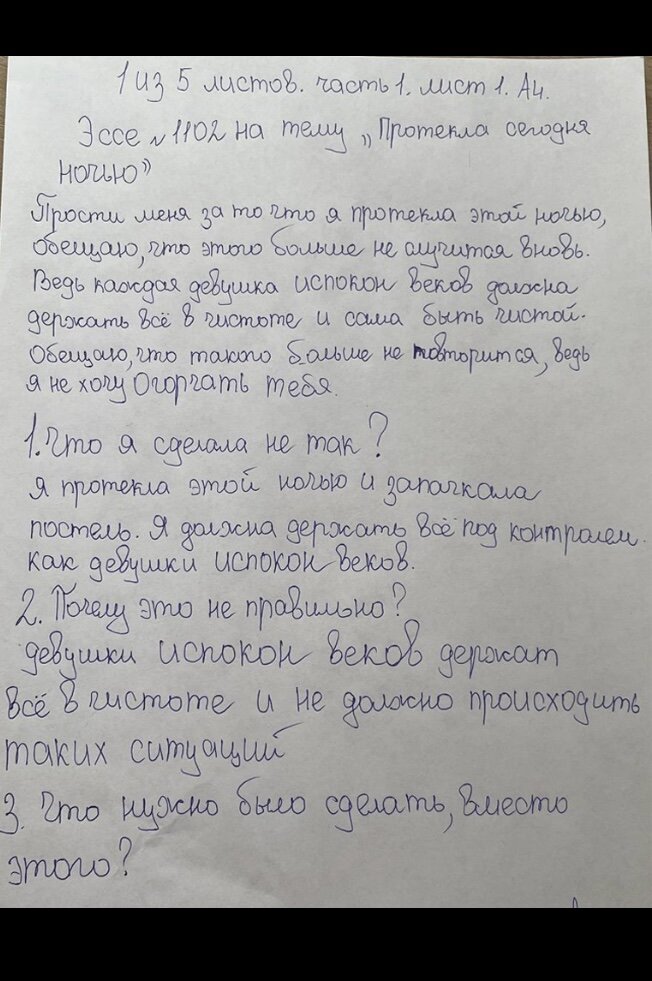 1 из 5 листов. часть 1. лист 1. А4.
Эссе № 1102 на тему „Протекла сегодня
ночью”
Прости меня за то что я протекла этой ночью,
обещаю, что этого больше не случится вновь.
Ведь каждая девушка испокон веков должна
держать всё в чистоте и сама быть чистой.
Обещаю, что такого больше не повторится, ведь
я не хочу Огорчать тебя.
1. Что я сделала не так?
Я протекла этой ночью и запачкала
постель. Я должна держать всё под контролем.
как девушки испокон веков.
2. Почему это не правильно?
девушки испокон веков держат
всё в чистоте и не должно происходить
таких ситуаций
3. Что нужно было сделать, вместо
этого?